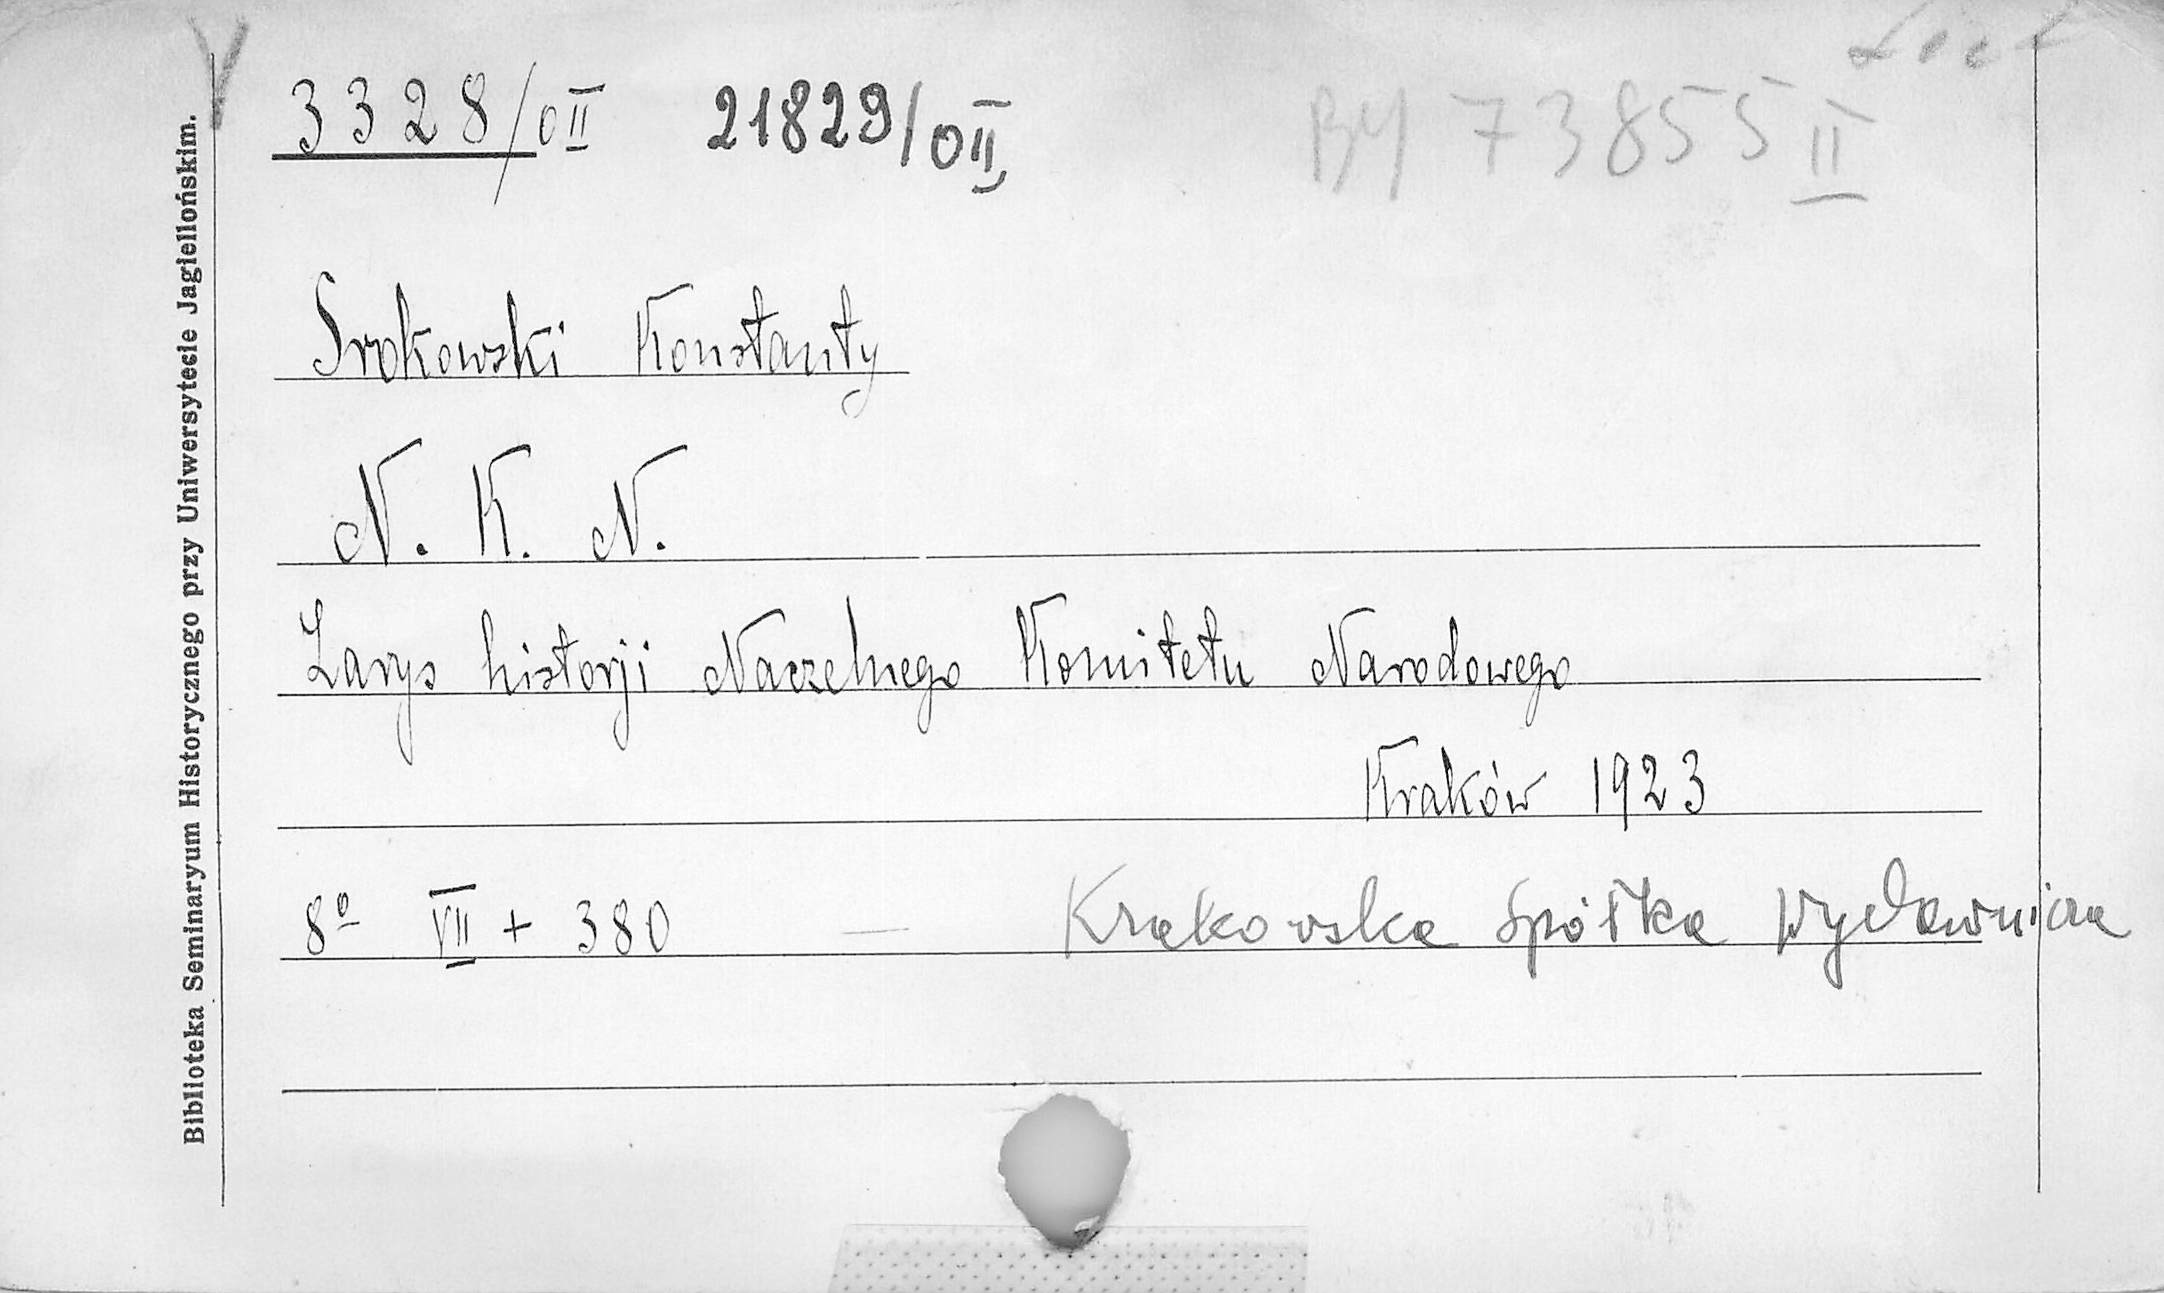 3328/0II 21829/0II BJ 73855 II
Srokowski Konstanty
N. K. N.
Zarys historji Naczelnego Komitetu Narodowego
Kraków 1923
8º VII + 380 — Krakowska Spółka Wydawnicza
Biblioteka Seminaryum Historycznego przy Uniwersytecie Jagiellońskim.